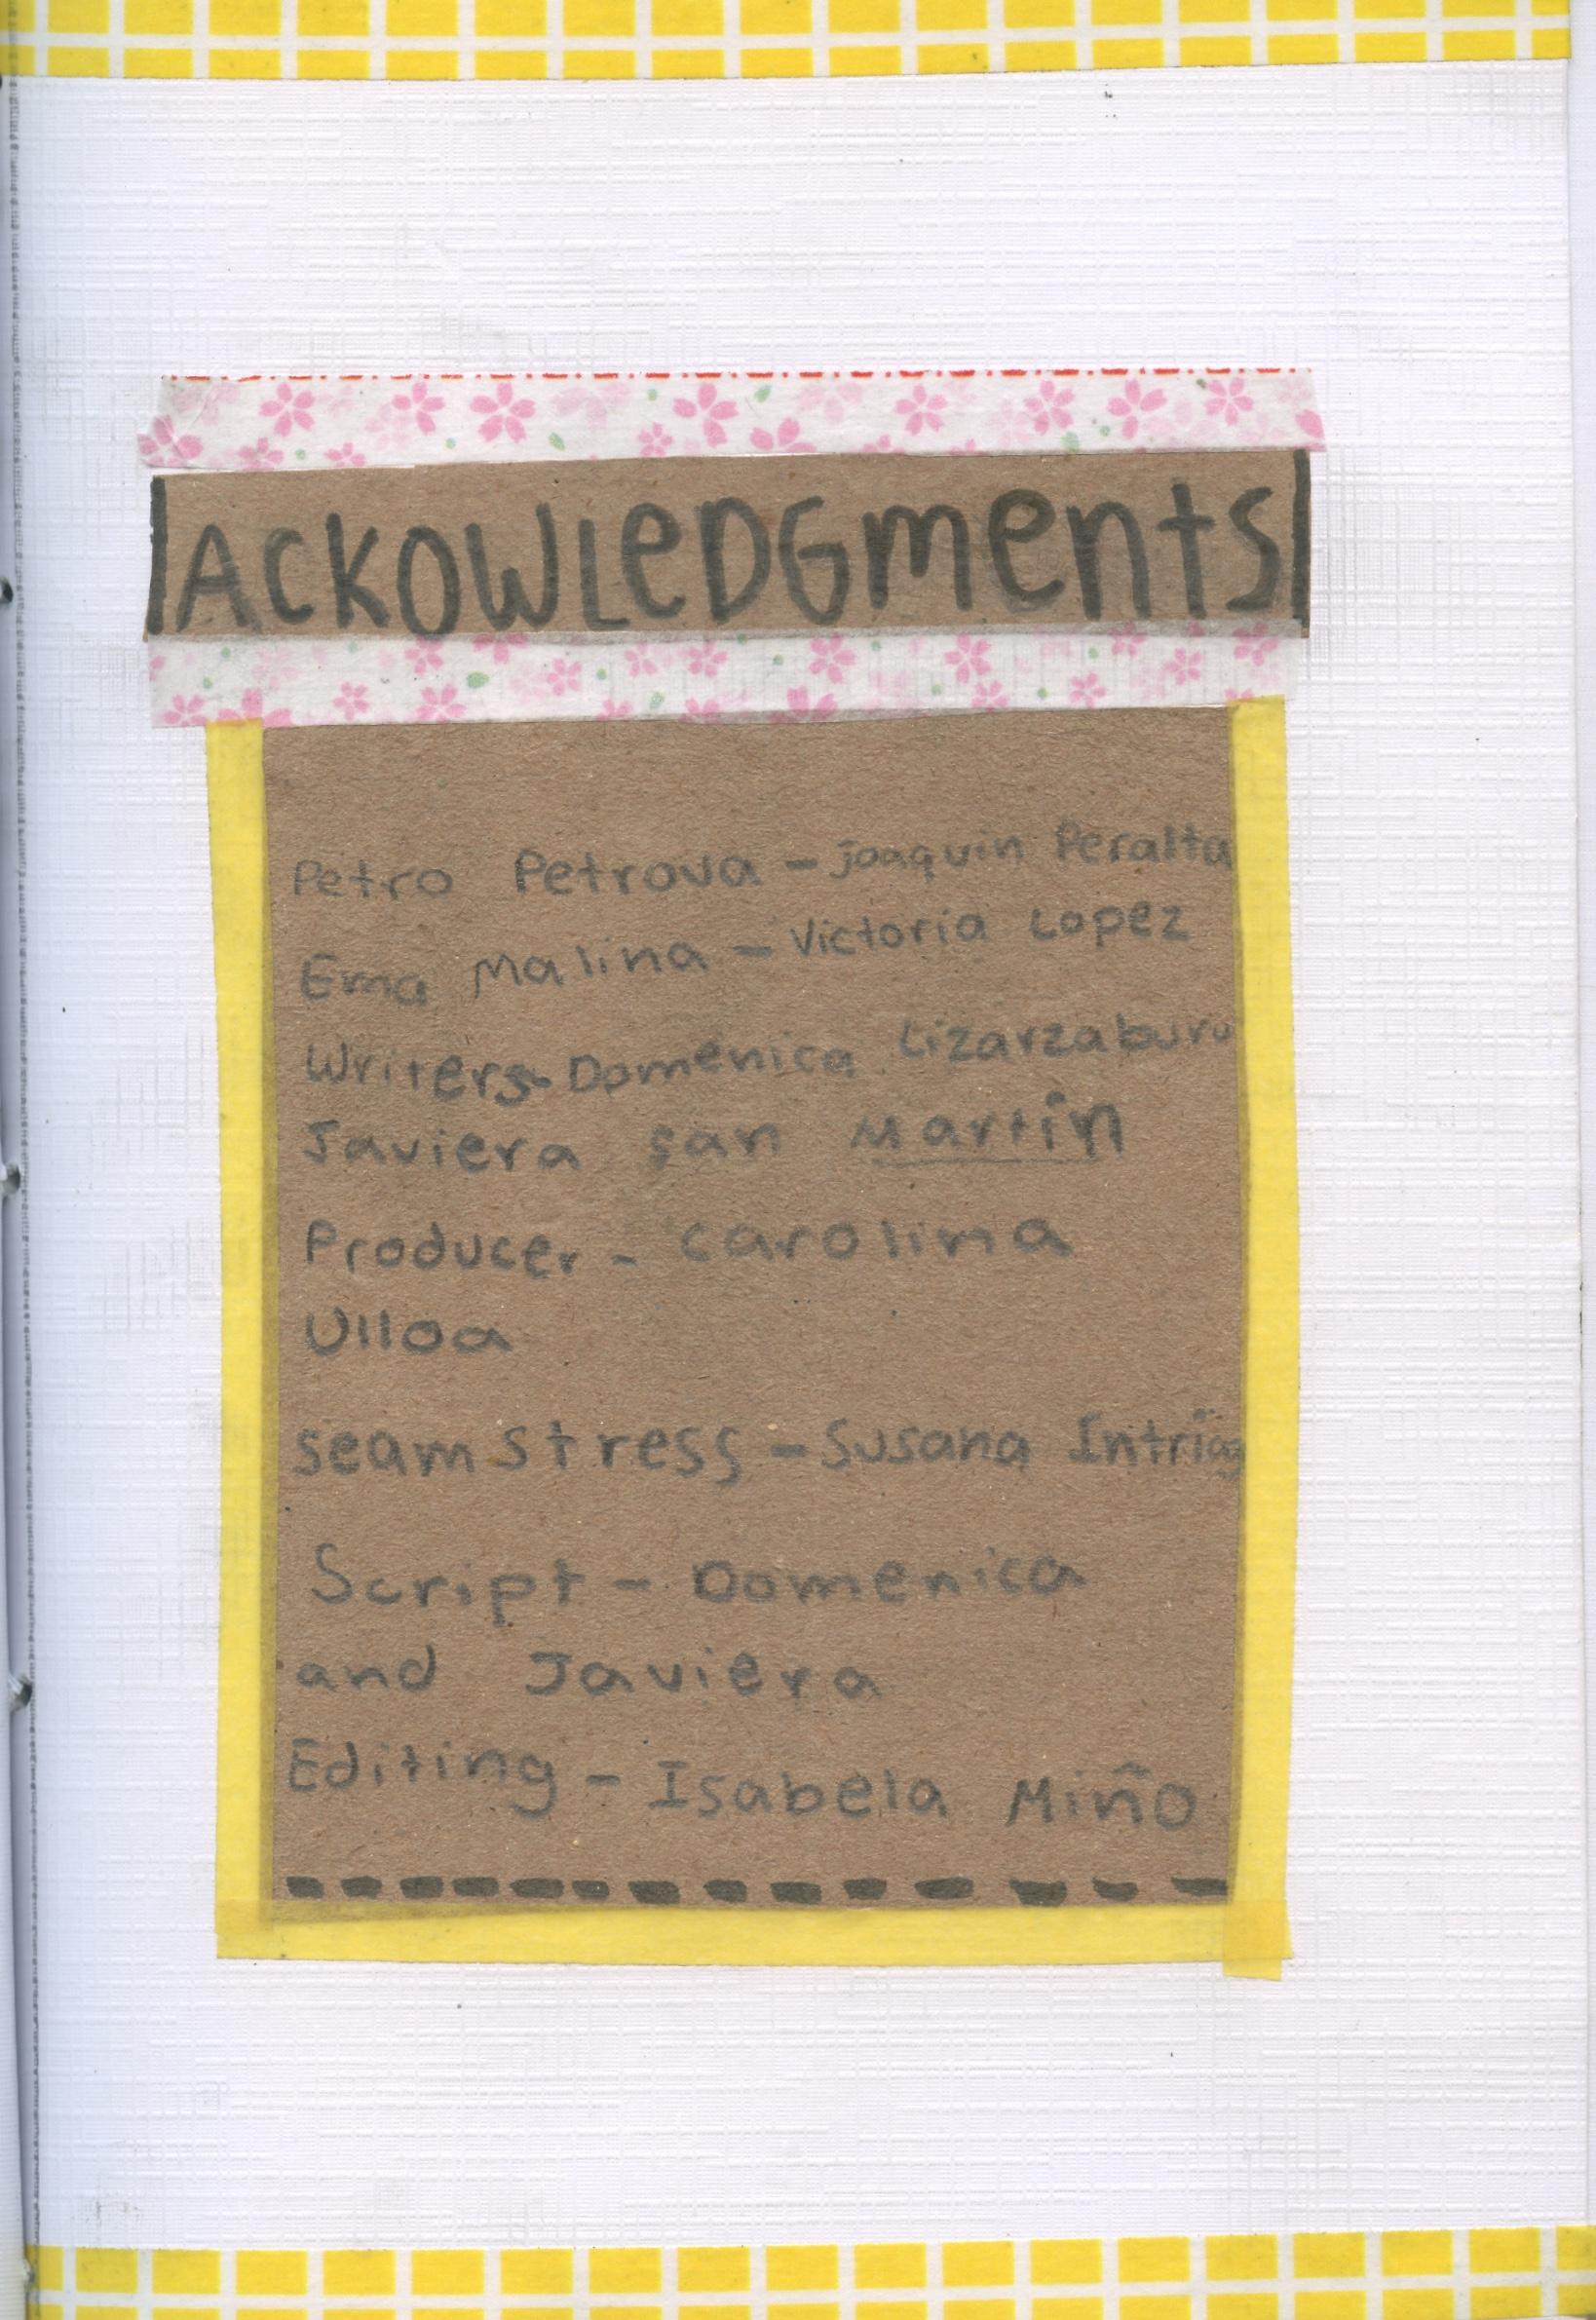 ACKOWLeDGments
Petro Petrova - joaquin Peralta
Ema Malina - Victoria Lopez
Writers - Domenica Lizarzaburu
Javiera san Martín
Producer - Carolina
Ulloa
seamstress - Susana
Script - Domenica
and Javiera
Editing - Isabela Miño